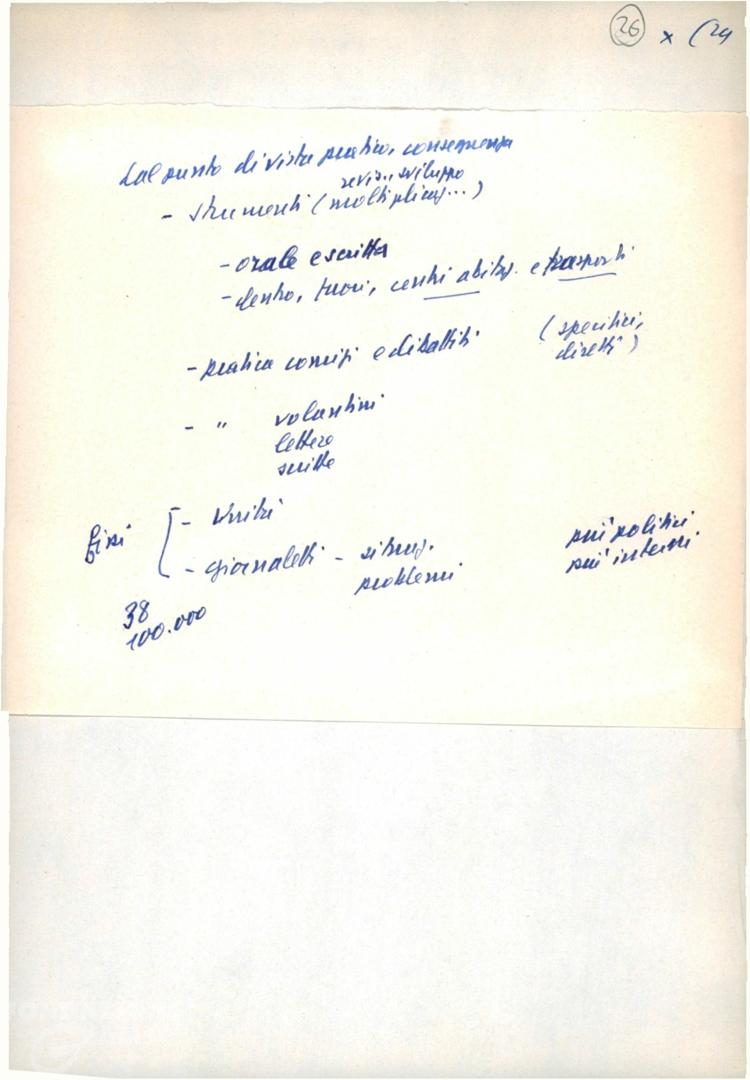 26 x (24
Dal punto di vista pratico, conseguenza
revis. sviluppo
- strumenti (moltiplicaz...)
- orale e scritta
- dentro, fuori, centri abitaz. e trasporti
- pratica comizi e dibattiti (specifici,
diretti)
- " volantini
lettere
scritte
- Unità
- giornaletti - situaz. più politici
problemi più interni
38
100.000